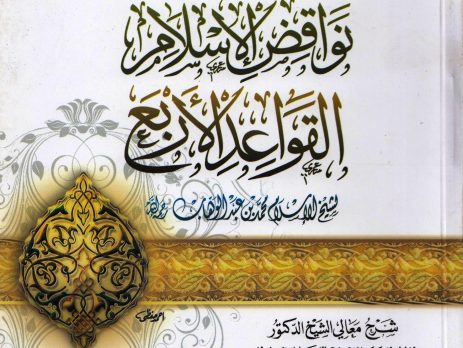 نَوَاقِضُ الْإِسْلَامِ
القَوَاعِدُ الأَرْبَعُ
لشيخ الإسلام محمد بن عبد الوهاب رحمه الله
شرح معالي الشيخ الدكتور